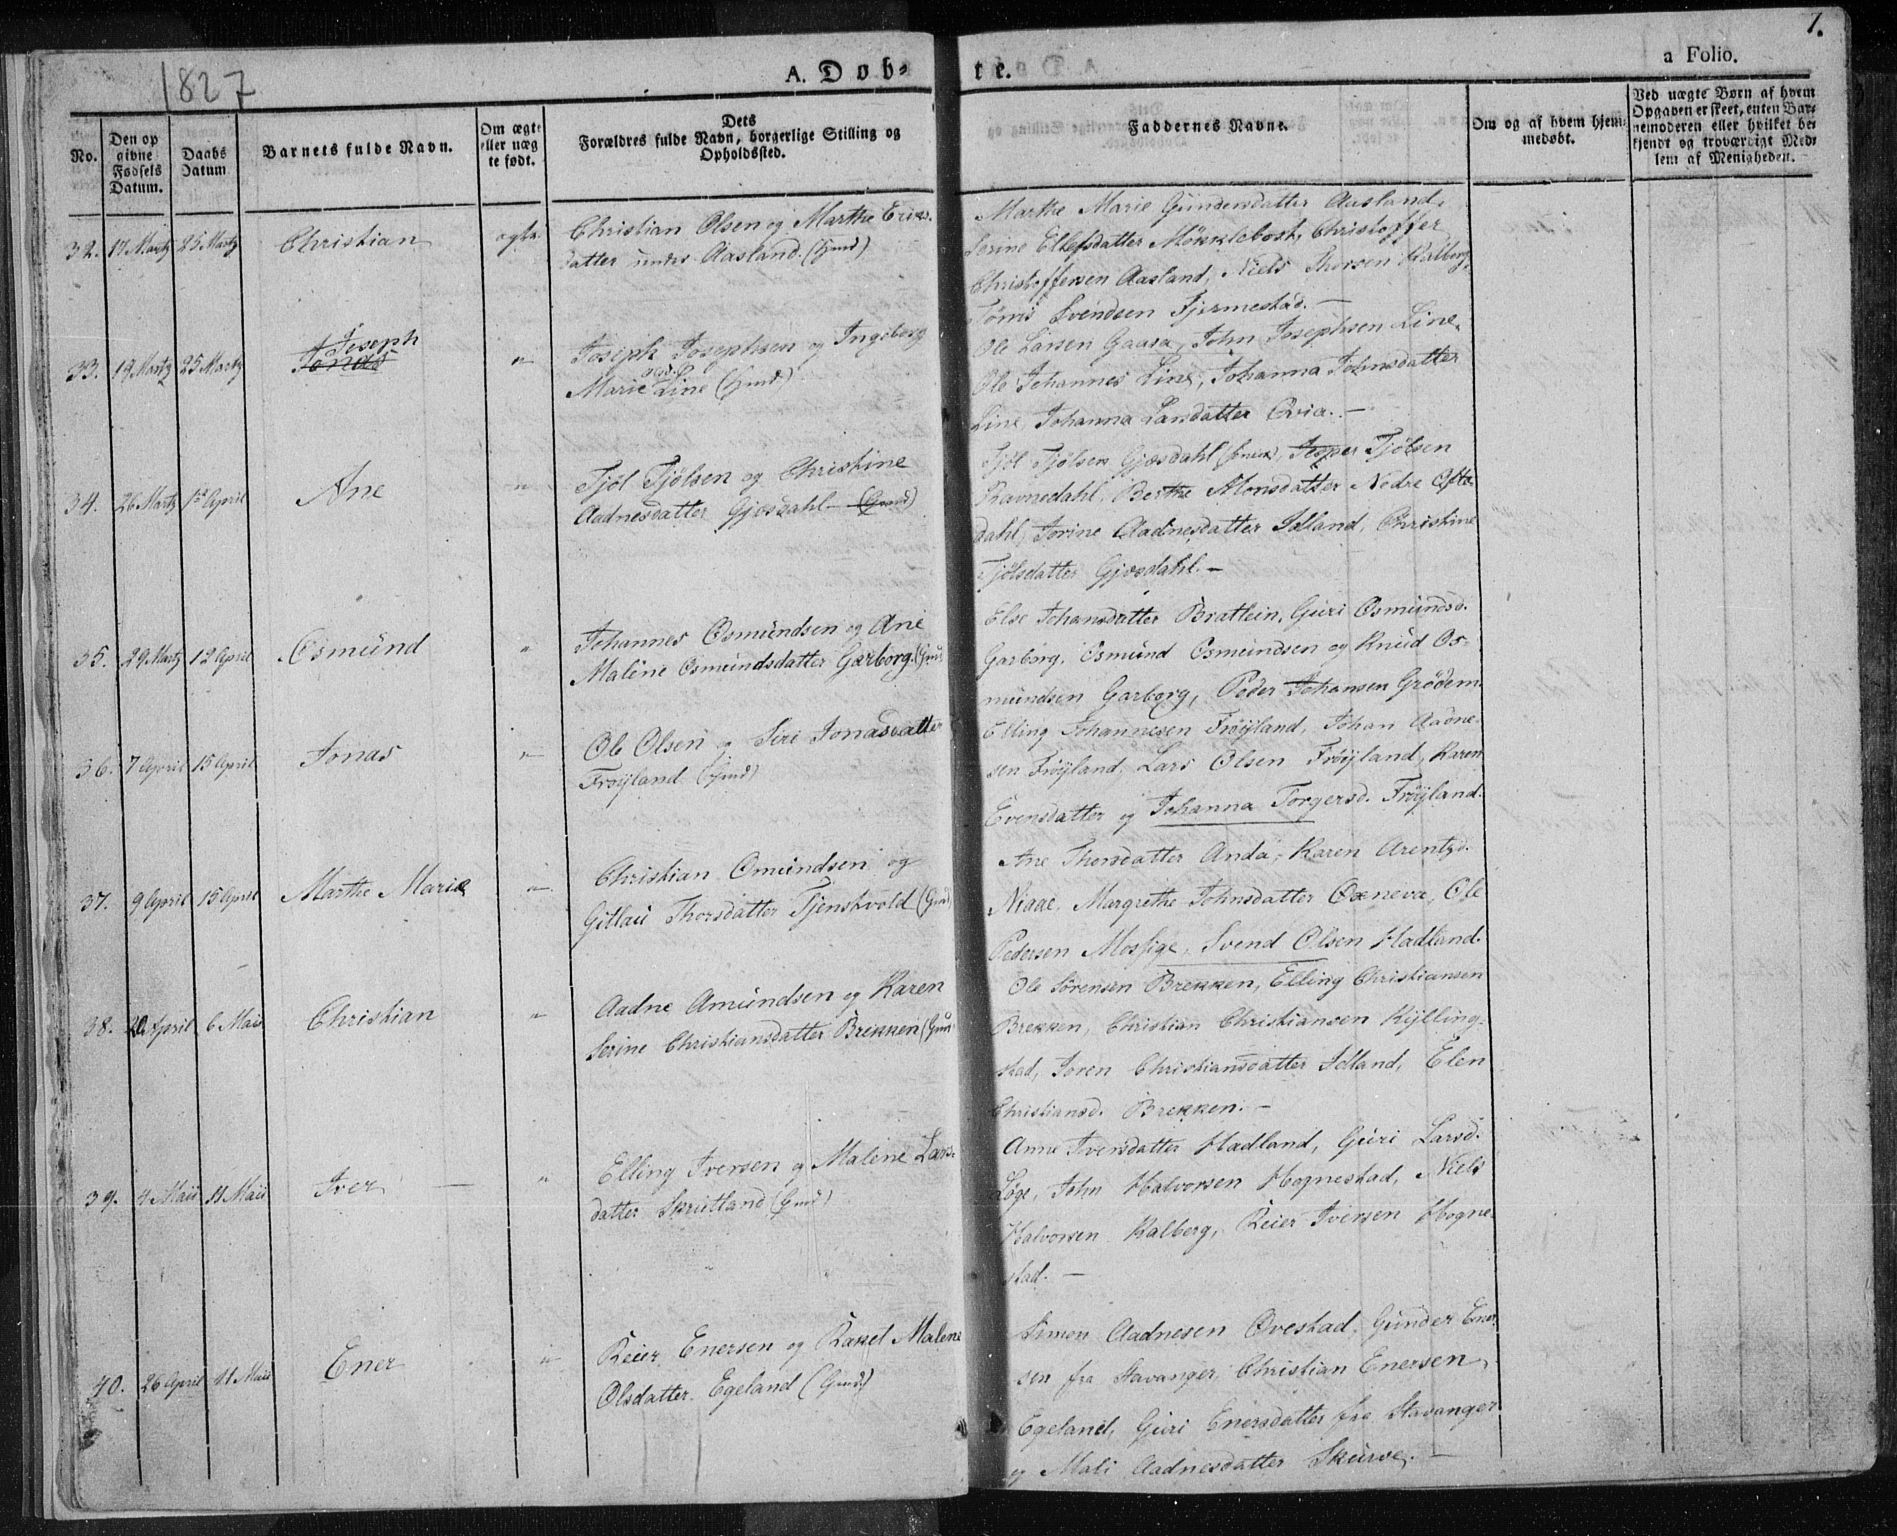 1827
A. Døb-
te.
a Folio.
7.
No.
Den op
givne
Fødsels
Datum.
Daabs
Datum
Barnets fulde Navn.
Om ægte
eller uæg
te født.
Dets
Forældres fulde Navn, borgerlige Stilling og
Opholdssted.
Faddernes Navne.
Om og af hvem hjem-
medøbt.
Ved uægte Børn af hvem
Opgaven er skeet, enten Bar-
nemoderen eller hvilket be
kjendt og troværdigt Med-
lem af Menigheden.
32. 17 Martz 25 Martz Christian ægte. Christian Olsen og Marthe Eriks-
datter under Aasland. (Gmd)
Marthe Marie Gundersdatter Aasland,
Serine Ellefsdatter Møkklebost, Christoffer
Christoffersen Aasland, Niels Thorsen Kalberg,
Tønnis Svendsen Fjermestad. —
33. 19 Martz 25 Martz Joseph
Jonas
" Joseph Josephsen og Ingeborg
Marie Line (Gmd)
Ole Larsen Gaara, John Josephsen Line,
Ole Johannes Line, Johanna Johnsdatter
Line, Johanna Larsdatter Qvia. —
34. 26 Martz 1ste April Ane " Fjøl Fjølsen og Christine
Aadnesdatter Gjesdahl (Gmd)
Fjøl Fjølsen Gjesdahl, Jesper Fjølsen
Ravnedahl, Berthe Monsdatter Nedre Ofte-
dahl, Jorine Aadnesdatter Idland, Christine
Fjølsdatter Gjesdahl. —
35. 29 Martz 12 April Osmund " Johannes Osmundsen og Ane
Malene Osmundsdatter Garborg. (Gmd
Else Johansdatter Bratlein, Guri Osmundsd.
Garborg, Osmund Osmundsen og Knud Os-
mundsen Garborg, Peder Johansen Grødem.
36. 7 April 15 April Jonas " Ole Olsen og Siri Jonasdatter
Frøyland (Gmd)
Elling Johannesen Frøyland, Johan Aadne-
sen Frøyland, Lars Olsen Frøyland, Karen
Evensdatter og Johanna Torgersd. Frøyland.
37. 9 April 15 April Marthe Marie " Christian Omundsen og
Gitlau Thorsdatter Tjenstvold (Gmd)
Ane Thorsdatter Anda, Karen Arentzd.
Niaae, Margrethe Johnsdatter Oxneva, Ole
Pedersen Mossige, Svend Olsen Hadland.
38. 20 April 6 Mai Christian " Aadne Amundsen og Karen
Serine Christiansdatter Brekken (Gmd
Ole Sørensen Brekken, Elling Christiansen
Brekken, Christian Christiansen Kylling-
stad, Soren Christiansdatter Idland, Elen
Christiansd. Brekken. —
39. 4 Maii 11 Maii Iver — " Elling Iversen og Malene Lars-
datter Skrutland (Gmd)
Anne Iversdatter Hadland, Guri Larsd.
Løge, John Halvorsen Hognestad, Niels
Halvorsen Kalberg, Reier Iversen Hogne-
stad. —
40. 26 April 11 Maii Ener " Reier Enersen og Rakkel Malene
Olsdatter Egeland (Gmd)
Simon Aadnesen Ovestad, Gunder Ener-
sen fra Stavanger, Christian Enersen
Egeland, Guri Enersdatter fra Stavanger
og Mali Aadnesdatter Skurve. —